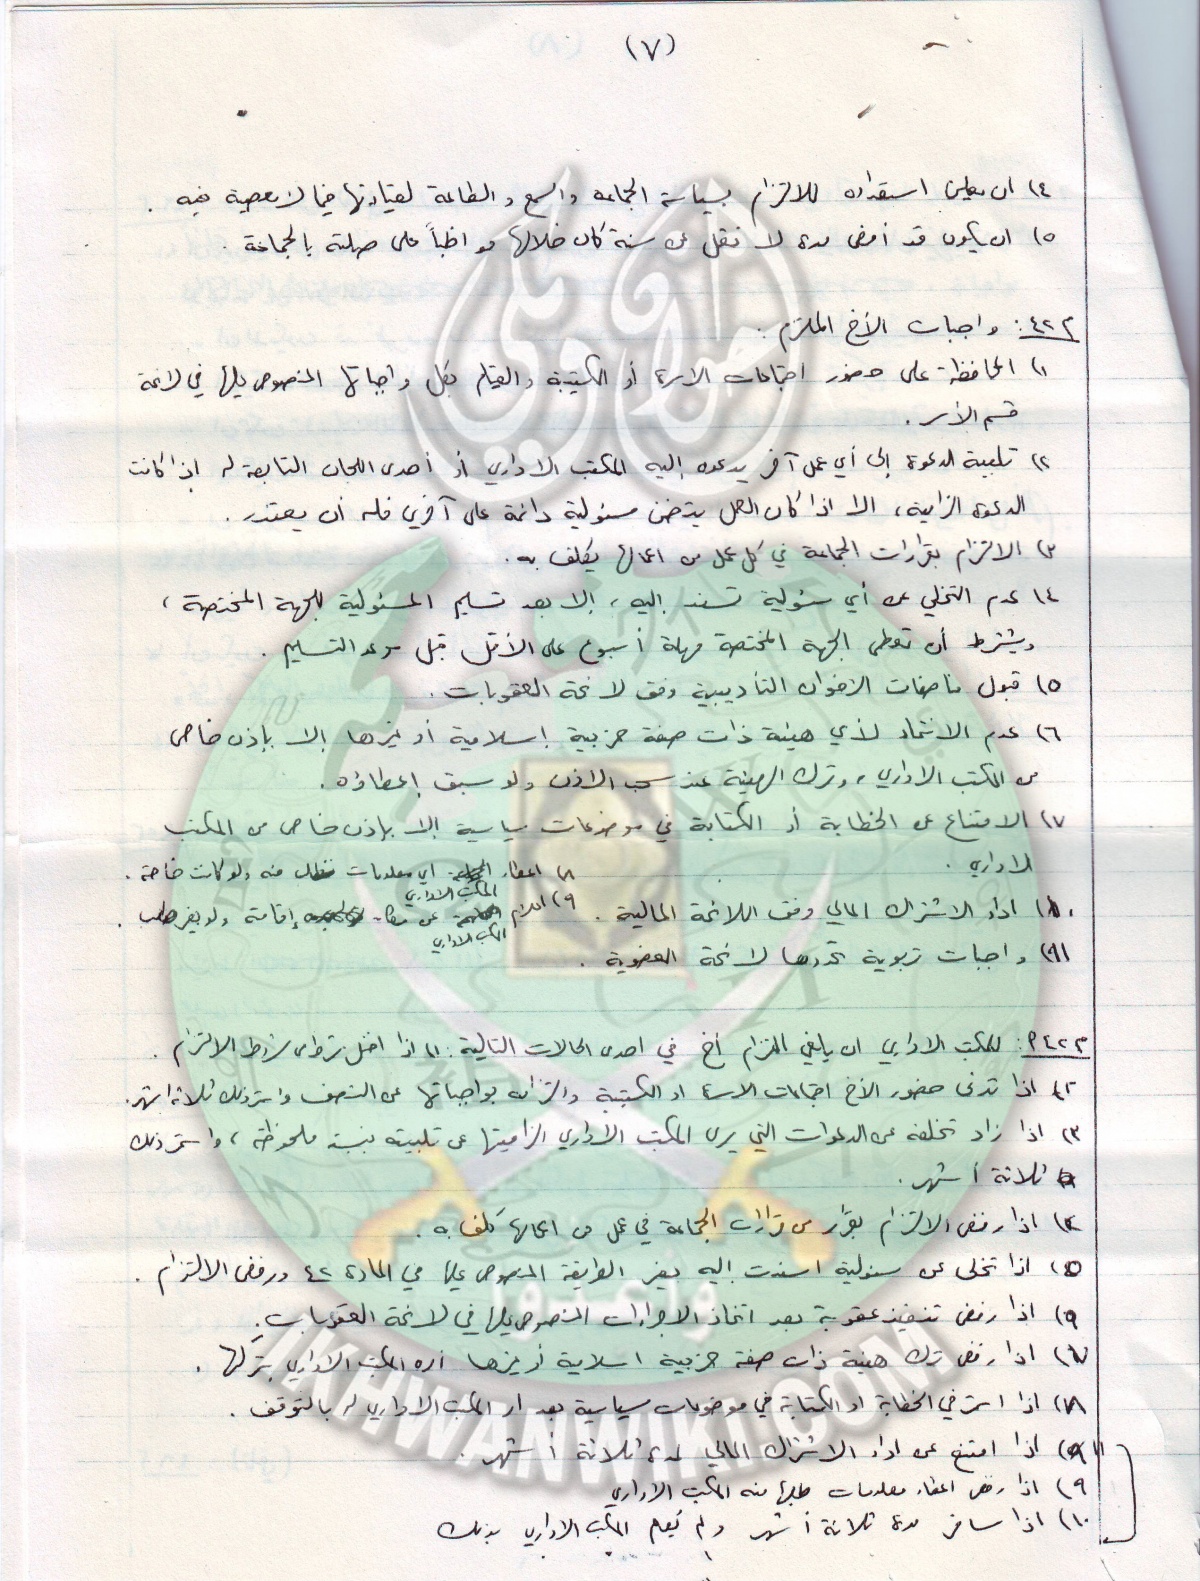 (٧)
٤) ان يعلن استعداده للالتزام بسياسة الجماعة والسمع والطاعة لقيادتها فيما لا معصية فيه .
٥) ان يكون قد أمضى مدة لا تقل عن سنة كان خلالها مواظباً على صلته بالجماعة .
م٤٢ : واجبات الأخ الملتزم :
١) المحافظة على حضور اجتماعات الاسرة أو الكتيبة والقيام بكل واجباتها المنصوص عليها في لائحة
قسم الأسر .
٢) تلبية الدعوة إلى أي عمل آخر يدعوه إليه المكتب الاداري أو أحدى اللجان التابعة له إذا كانت
الدعوة الزامية ، الا اذا كان العمل يتضمن مسئولية دائمة على آخرين فله ان يعتذر .
٣) الالتزام بقرارات الجماعة في كل عمل من اعمالها يكلف به .
٤) عدم التخلي عن أي مسئولية تسند إليه ، إلا بعد تسليم المسئولية للجهة المختصة ،
ويشترط أن تعطى الجهة المختصة مهلة أسبوع على الأقل قبل موعد التسليم .
٥) قبول مناصفات الاخوان التأديبية وفق لائحة العقوبات .
٦) عدم الانتماء لأي هيئة ذات صفة حزبية إسلامية أو غيرها إلا بإذن خاص
من المكتب الاداري ، وترك الهيئة عند سحب الاذن ولو سبق إعطاؤه .
٧) الامتناع عن الخطابة أو الكتابة في موضوعات سياسية إلا بإذن خاص من المكتب
الاداري .
٨) اعطاء أي معلومات تطلب منه ولو كانت خاصة .
المكتب الاداري
٩) اعلام عن مكان إقامته ولو بغير طلب .
المكتب الاداري
١٠) اداء الاشتراك المالي وفق اللائحة المالية .
١١) واجبات تربوية تحددها لائحة العضوية .
م٤٢ : للمكتب الاداري ان يلغي التزام أخ في احدى الحالات التالية : ١) اذا اختل شرط من شروط الالتزام .
٢) اذا تدنى حضور الأخ اجتماعات الاسرة او الكتيبة والتزامه بواجباتها عن النصف واستمر ذلك ثلاثة اشهر .
٣) اذا زاد تخلفه عن الدعوات التي يرى المكتب الاداري الزاميتها عن تلبيته بنسبة ملحوظة ، واستمر ذلك
ثلاثة أشهر .
٤) اذا رفض الالتزام بقرار من قرارات الجماعة في عمل من اعمالها كلف به .
٥) اذا تخلى عن مسئولية اسندت إليه بغير الطريقة المنصوص عليها في المادة ٤٢ ورفض الالتزام .
٦) اذا رفض تنفيذ عقوبة بعد اتخاذ الاجراءات المنصوص عليها في لائحة العقوبات .
٧) اذا رفض ترك هيئة ذات صفة حزبية اسلامية أو غيرها أمره المكتب الاداري بتركها .
٨) اذا استمر في الخطابة او الكتابة في موضوعات سياسية بعد أمر المكتب الاداري له بالتوقف .
١١) اذا امتنع عن اداء الاشتراك المالي لمدة ثلاثة أشهر .
٩) اذا رفض اعطاء معلومات طلبها منه المكتب الاداري
١٠) اذا سافر مدة ثلاثة أشهر ولم يُعلم المكتب الاداري بذلك
IKHWANWIKI.COM